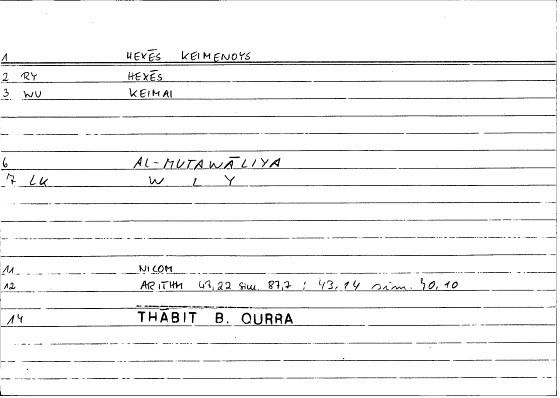 1 HEXĒS KEIMENOYS
2 RY HEXĒS
3 WU KEIMAI
6 AL-MUTAWĀLIYA
7 LK W L Y
11 NICOM
12 ARITHM 43,22 sim. 87,7 ; 43,14 sim. 40,10
14 THĀBIT B. QURRA